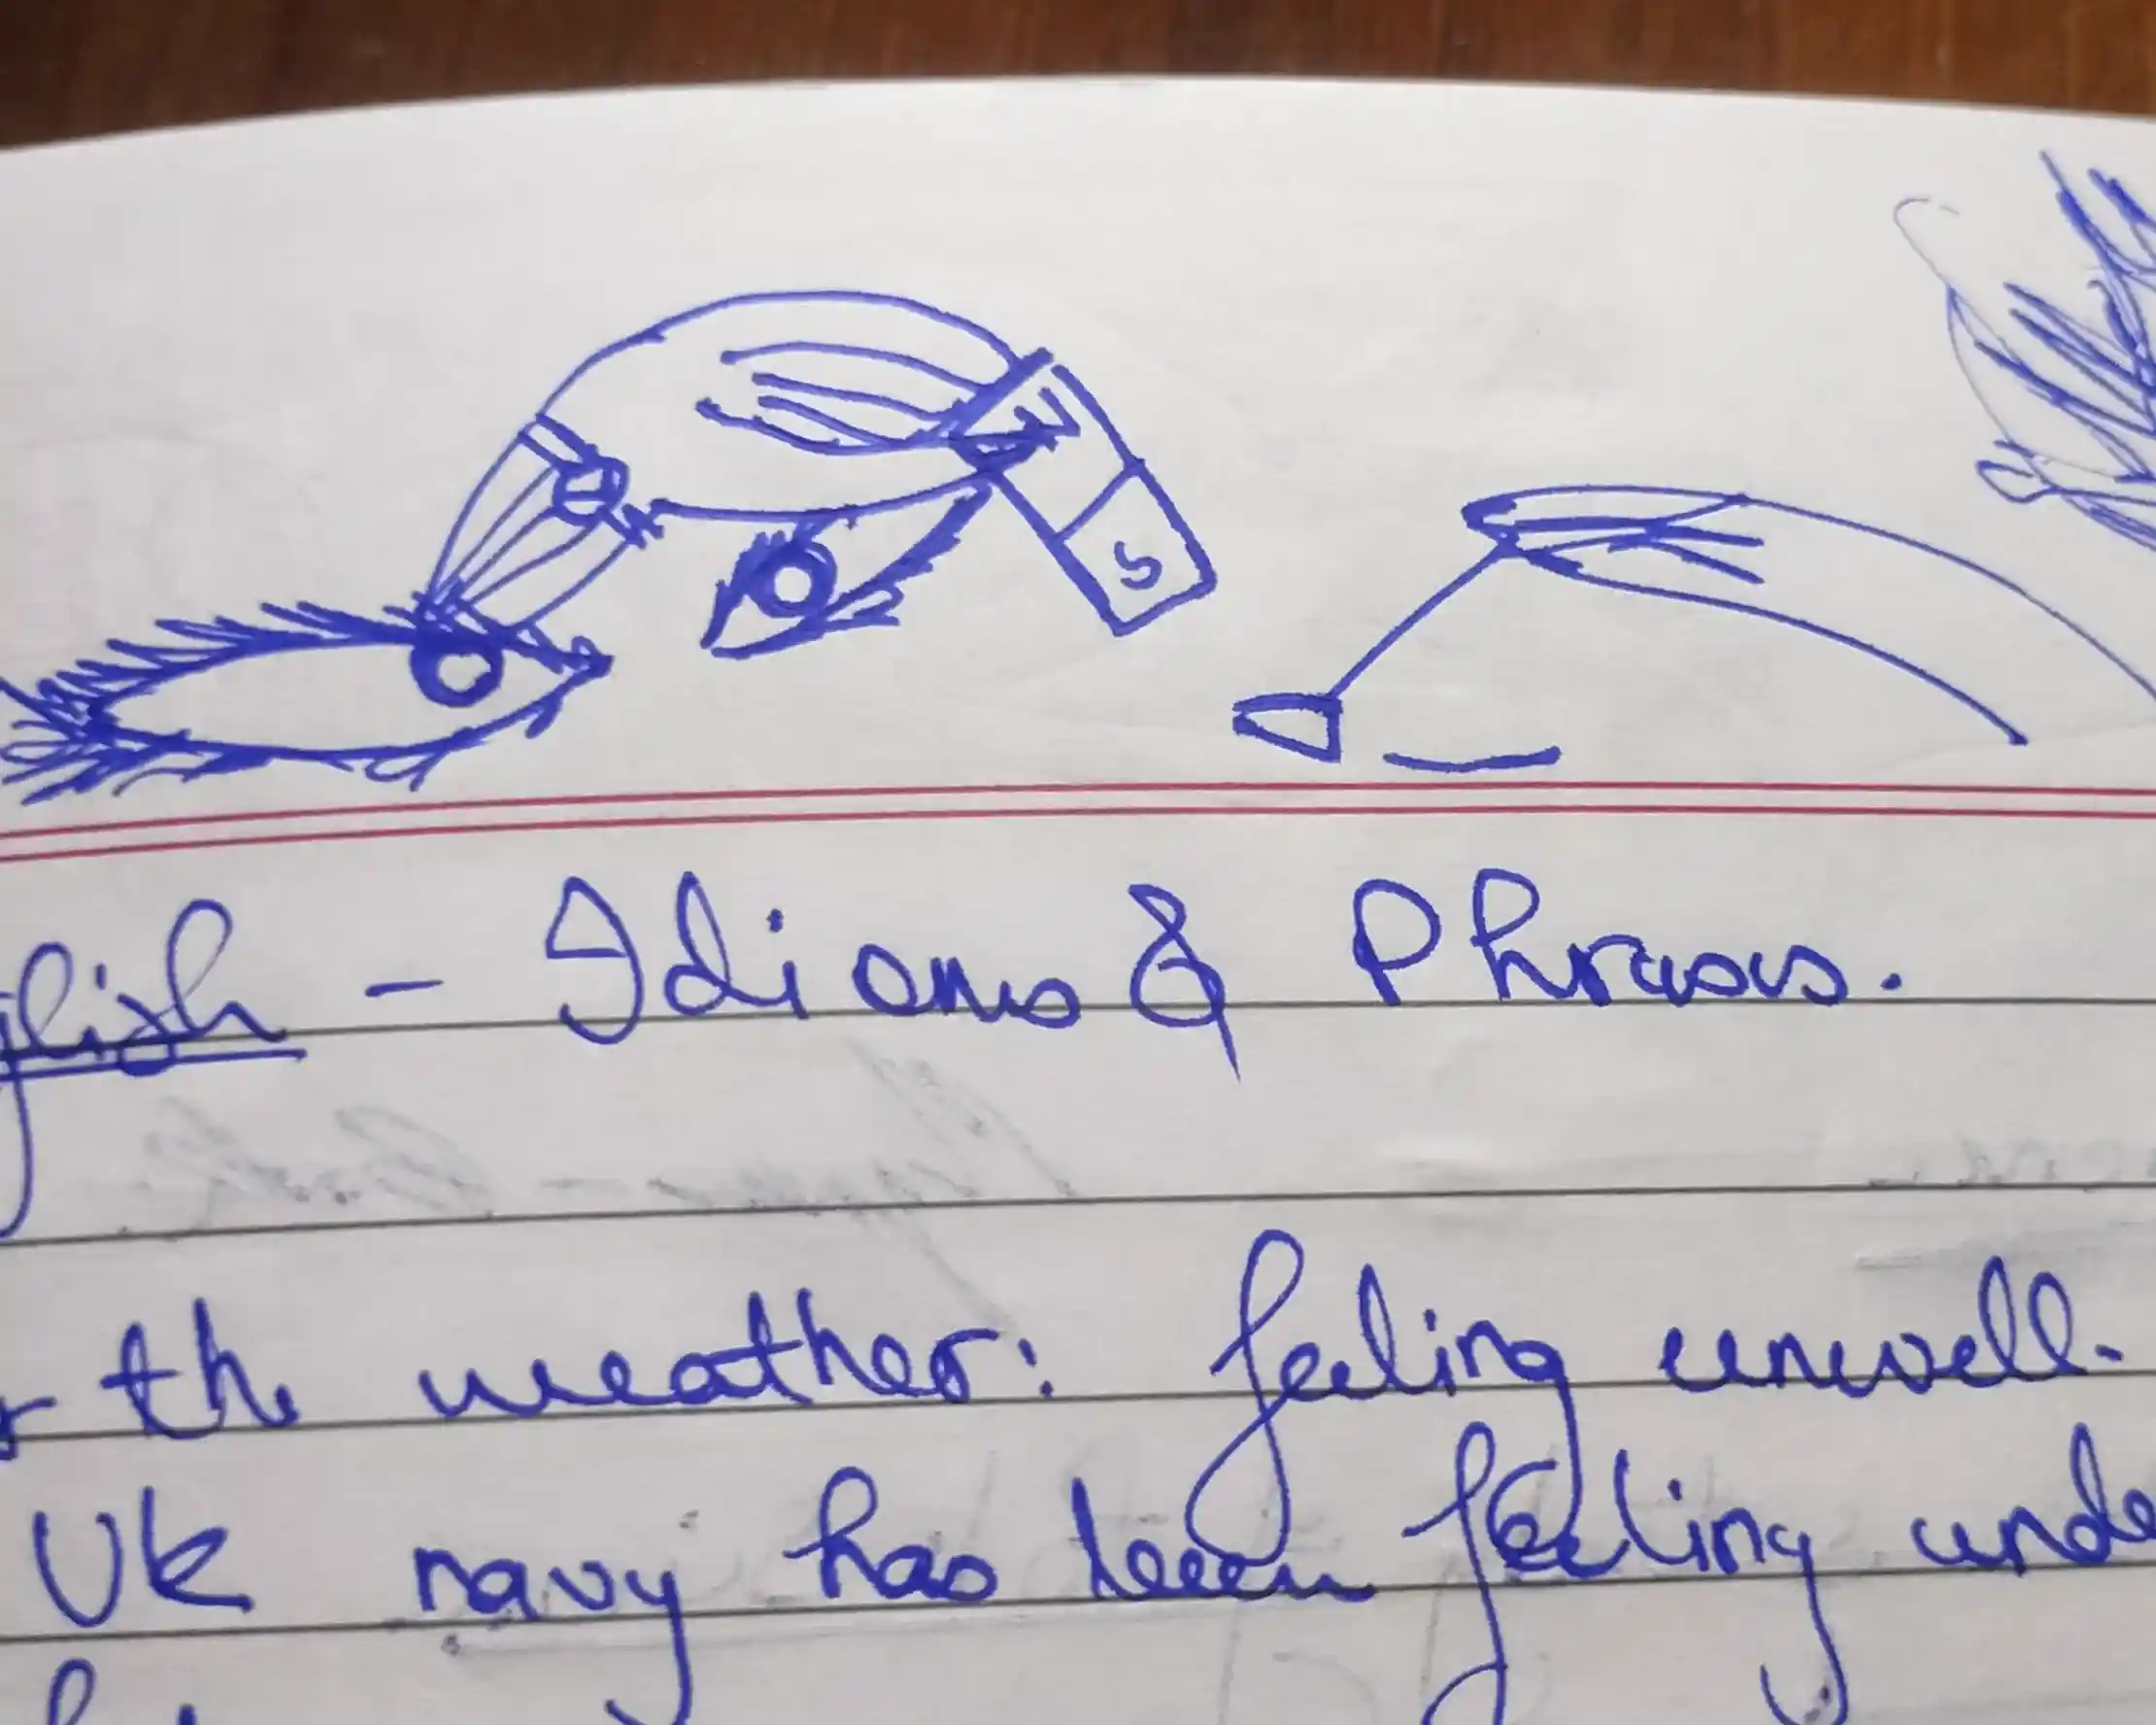 N
S
glish - Idioms & Phrases.
r the weather: feeling unwell.
Uk navy has been feeling unde